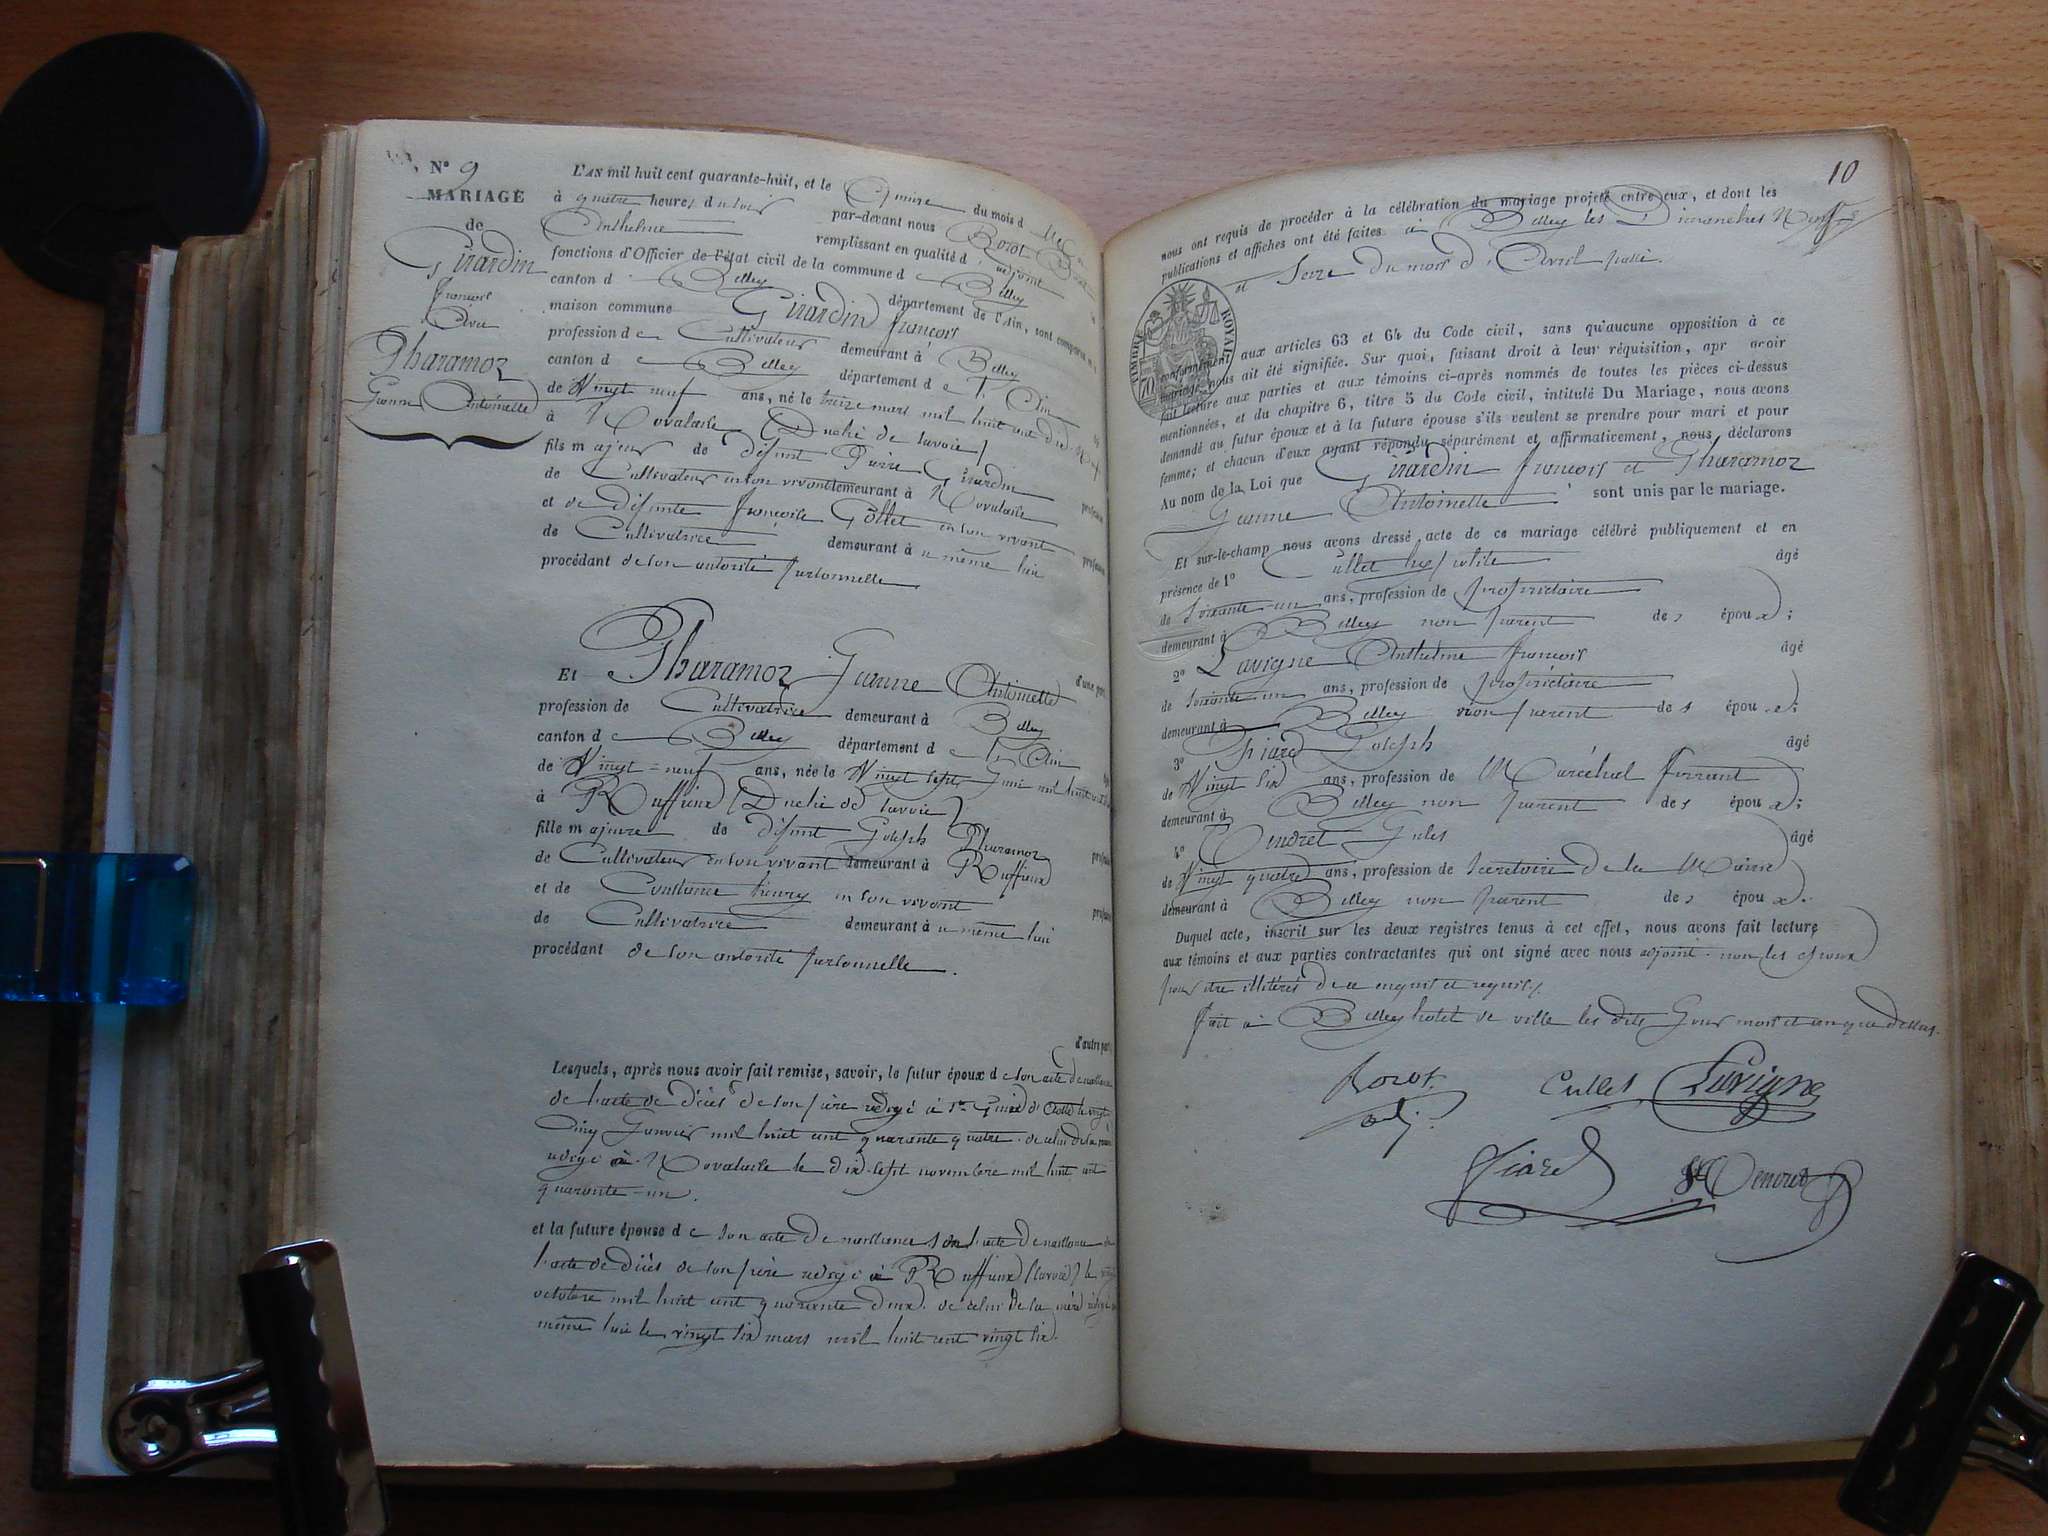 N° 9
MARIAGE
de
Girardin
françois
Avec
Pharamoz
Jeanne Antoinette
L'AN mil huit cent quarante-huit, et le Quinze du mois d
à quatre heures du soir par-devant nous Borot
Anthelme remplissant en qualité d'adjoint
fonctions d'Officier de l'état civil de la commune d Belley
canton d Belley département de l'Ain, sont comparus
maison commune Girardin françois
profession de Cultivateur demeurant à Belley
canton de Belley département de l'Ain
de Vingt neuf ans, né le treize mars mil huit cent dix neuf
à Novalaise (Duché de Savoie)
fils majeur de défunt Pierre Girardin
de Cultivateur en son vivant demeurant à Novalaise
et de défunte françoise Gollet en son vivant
de Cultivatrice demeurant à u même lieu
procédant de son autorité personnelle
d'une part
Et Pharamoz Jeanne Antoinette
profession de Cultivatrice demeurant à Belley
canton de Belley département de l'Ain
de Vingt-neuf ans, née le Vingt sept Juin mil huit cent
à Ruffieux (Duché de Savoie)
fille majeure de défunt Joseph Pharamoz
de Cultivateur en son vivant demeurant à Ruffieux
et de Constance henry en son vivant
de Cultivatrice demeurant à u même lieu
procédant de son autorité personnelle.
d'autre part
Lesquels, après nous avoir fait remise, savoir, le futur époux de son acte de naissance
de l'acte de décès de son père rédigé à le vingt
Cinq Janvier mil huit cent quarante quatre. de celui de la mère
rédigé à Novalaise le dix-sept novembre mil huit cent
quarante-un.
et la future épouse de son acte de naissance l'acte de naissance
l'acte de décès de son père rédigé à Ruffieux (Savoie) le vingt
octobre mil huit cent quarante deux. de celui de la mère rédigé
même lieu le vingt six mars mil huit cent vingt six.
10
nous ont requis de procéder à la célébration du mariage projeté entre eux, et dont les
publications et affiches ont été faites à Belley les Dimanches Neuf
et Seize du mois d'Avril passé.
TIMBRE ROYAL
70
conformément aux articles 63 et 64 du Code civil, sans qu'aucune opposition à ce
mariage nous ait été signifiée. Sur quoi, faisant droit à leur réquisition, apr avoir
fait lecture aux parties et aux témoins ci-après nommés de toutes les pièces ci-dessus
mentionnées, et du chapitre 6, titre 5 du Code civil, intitulé Du Mariage, nous avons
demandé au futur époux et à la future épouse s'ils veulent se prendre pour mari et pour
femme; et chacun d'eux ayant répondu séparément et affirmativement, nous déclarons
Au nom de la Loi que Girardin françois et Pharamoz
Jeanne Antoinette sont unis par le mariage.
Et sur-le-champ nous avons dressé acte de ce mariage célébré publiquement et en
présence de 1° Cullet hypolite âgé
de soixante-un ans, profession de propriétaire
demeurant à Belley non parent des époux;
2° Lavigne Anthelme françois âgé
de soixante-un ans, profession de propriétaire
demeurant à Belley non parent des époux;
3° Piard Joseph âgé
de Vingt six ans, profession de Maréchal ferrant
demeurant à Belley non parent des époux;
4° Tendret Jules âgé
de Vingt quatre ans, profession de secrétaire de la Mairie
demeurant à Belley non parent des époux.
Duquel acte, inscrit sur les deux registres tenus à cet effet, nous avons fait lecture
aux témoins et aux parties contractantes qui ont signé avec nous adjoint. non les époux
pour être illitérés de ce enquis et requis.
fait à Belley hotel de ville les dits Jour mois et an que dessus.
Borot.
adj.
Cullet
Lavigne
Piard
Tendret